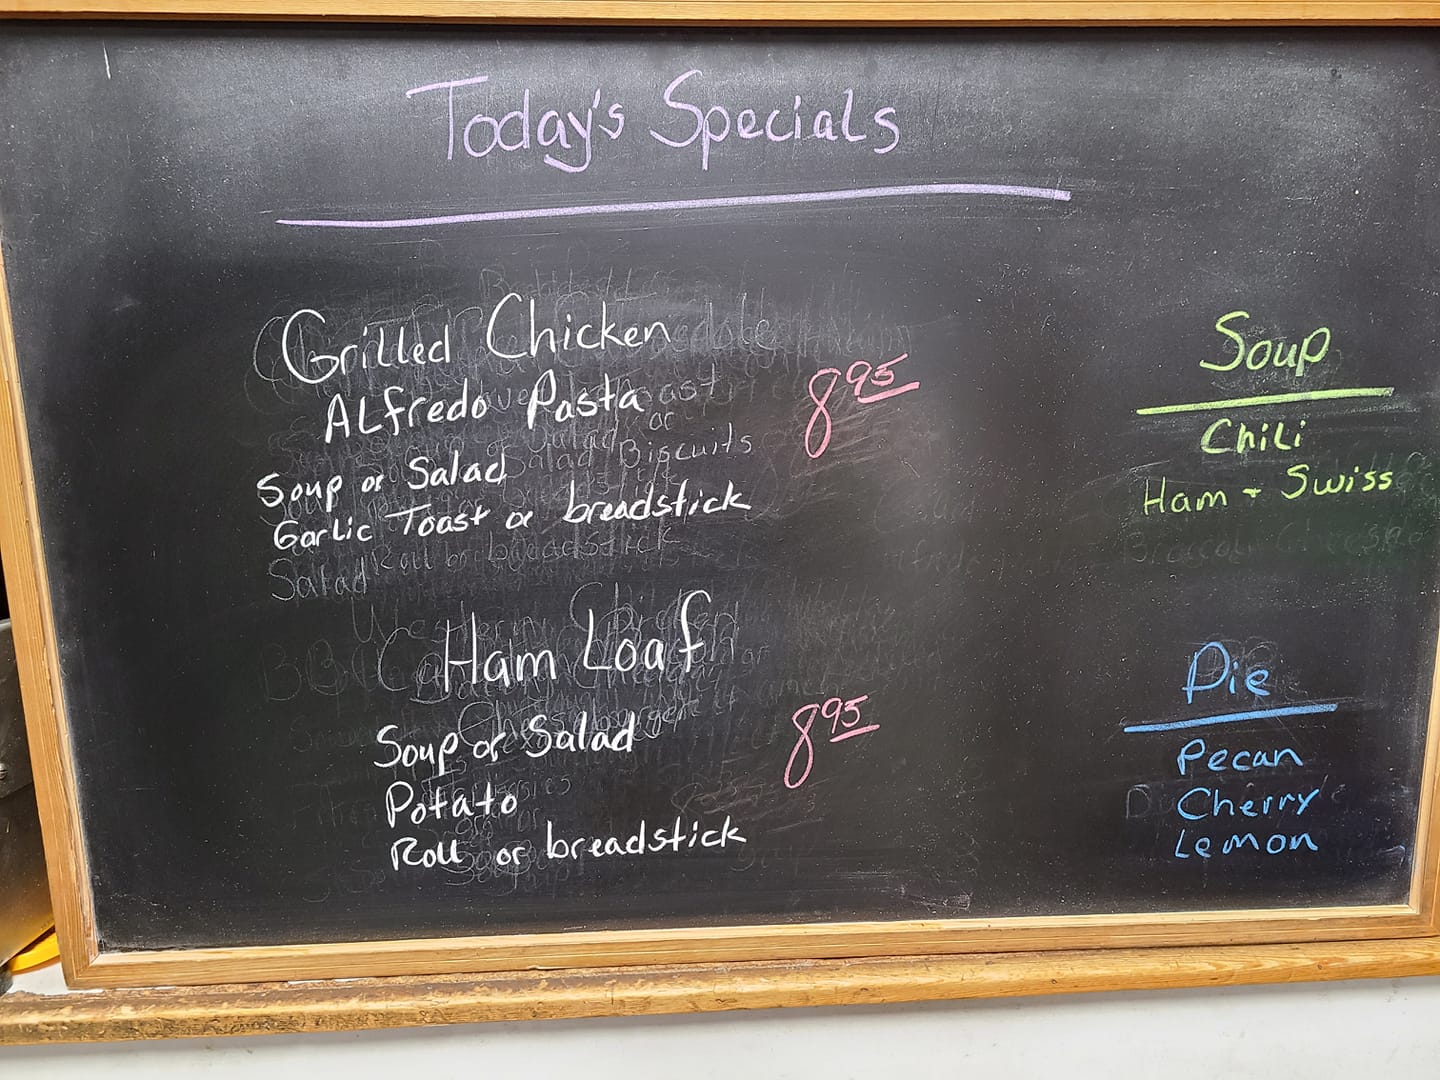 Today's Specials
Grilled Chicken
Alfredo Pasta
8 95
Soup or Salad
Garlic Toast or breadstick
Ham Loaf
8 95
Soup or Salad
Potato
Roll or breadstick
Soup
Chili
Ham + Swiss
Pie
Pecan
Cherry
Lemon